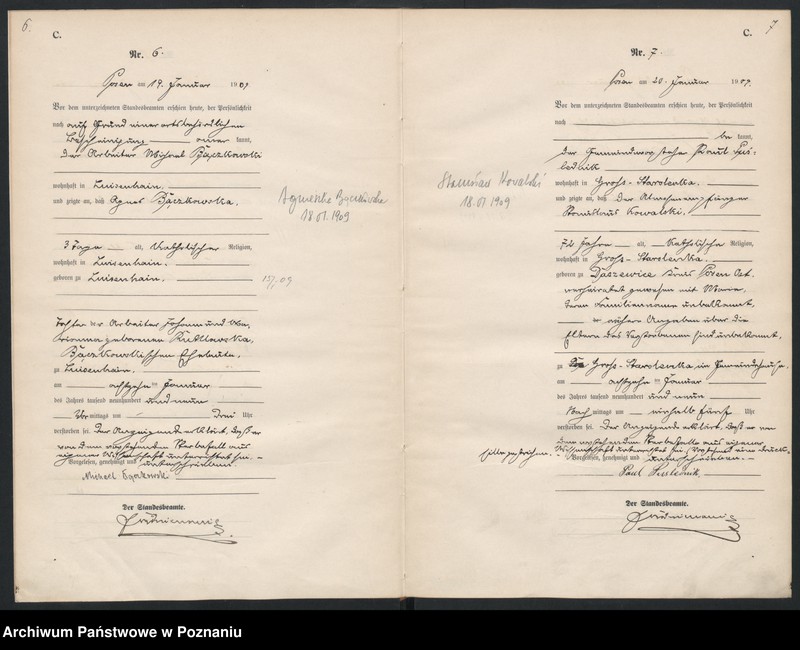 6.
C.
Nr. 6.
Posen am 19. Januar 1909
Vor dem unterzeichneten Standesbeamten erschien heute, der Persönlichkeit
nach auf Grund einer ortsbehördlichen
Bescheinigung kannt,
der Arbeiter Michael Bączkowski
wohnhaft in Luisenhain.
und zeigte an, daß Agnes Bączkowska,
Agnieszka Bączkowska
18.01.1909
3 Tage alt, katholischer Religion,
wohnhaft in Luisenhain.
geboren zu Luisenhain.
Tochter der Arbeiter Johann und
geborenen
Bączkowskischen Eheleute.
zu Luisenhain.
am achtzehn ten Januar
des Jahres tausend neunhundert und neun
Vor mittags um drei Uhr
verstorben sei. Der Anzeigende erklärt, daß er
von dem vorstehenden Sterbefalle aus
eigener Wissenschaft unterrichtet sei.
Vorgelesen, genehmigt und unterschrieben
Michael Bączkowski
Der Standesbeamte.
7
C.
Nr. 7.
Posen am 20. Januar 1909.
Vor dem unterzeichneten Standesbeamten erschien heute, der Persönlichkeit
nach
be kannt,
der Gemeindevorsteher Paul
wohnhaft in Groß-Starolenka.
und zeigte an, daß der Almosenempfänger
Stanislaus Kowalski.
Stanisław Kowalski
18.01.1909
72 Jahre alt, katholischer Religion,
wohnhaft in Groß-Starolenka.
geboren zu Daszewice Kreis Posen Ost.
verheiratet gewesen mit Marie,
deren Familienname unbekannt,
nähere Angaben über die
Eltern des Verstorbenen sind unbekannt,
zu Groß-Starolenka, im Gemeindehause,
am achtzehn ten Januar
des Jahres tausend neunhundert und neun
Nach mittags um einhalb fünf Uhr
verstorben sei. Der Anzeigende erklärt, daß er von
dem vorstehenden Sterbefalle aus eigener
Wissenschaft unterrichtet sei. Vorstehend ein Druck-
Vorgelesen, genehmigt und unterschrieben.
Paul
Der Standesbeamte.
Archiwum Państwowe w Poznaniu